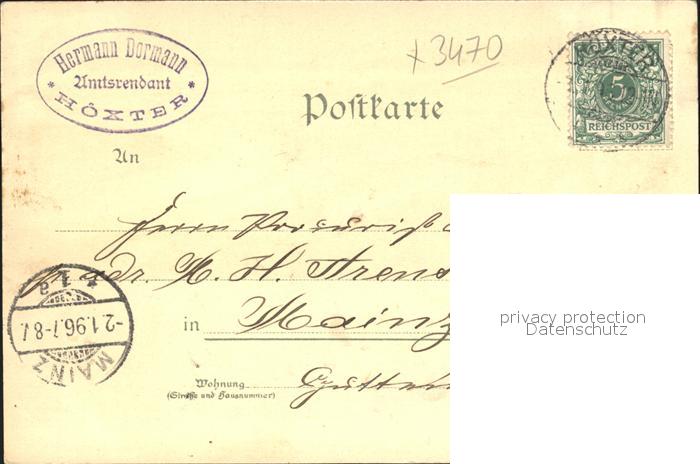 Hermann Dormann
* Amtsrendant *
HÖXTER
x 3470
HÖXTER
5
REICHSPOST
Postkarte
An
Herrn
H. Arens
in Mainz
Wohnung
(Straße und Hausnummer)
MAINZ
1 a
-2.1.96.7-8.V.
privacy protection
Datenschutz